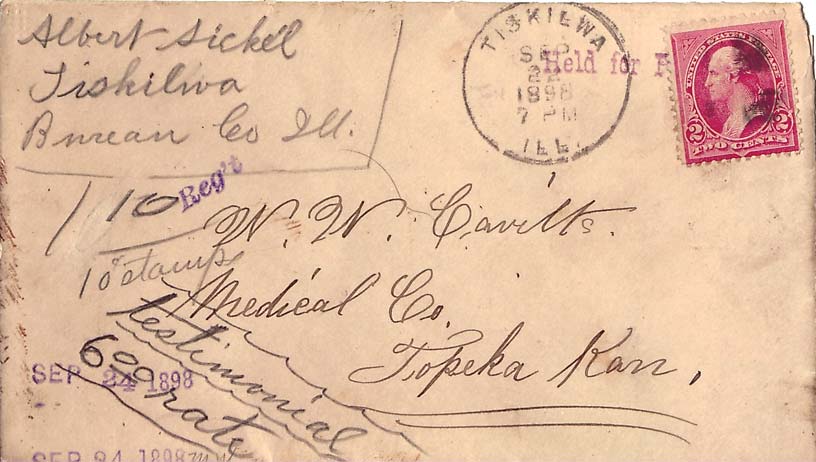 Albert Sickel
Tiskilwa
Bureau Co Ill.
TISKILWA
SEP
1898
7 PM
ILL.
Held for P
UNITED STATES POSTAGE
2 2
TWO CENTS
10
Reg't
W. W. Cavilts.
Medical Co.
Topeka Kan,
10 stamps
testimonial
rate
SEP 24 1898
SEP 24 1898